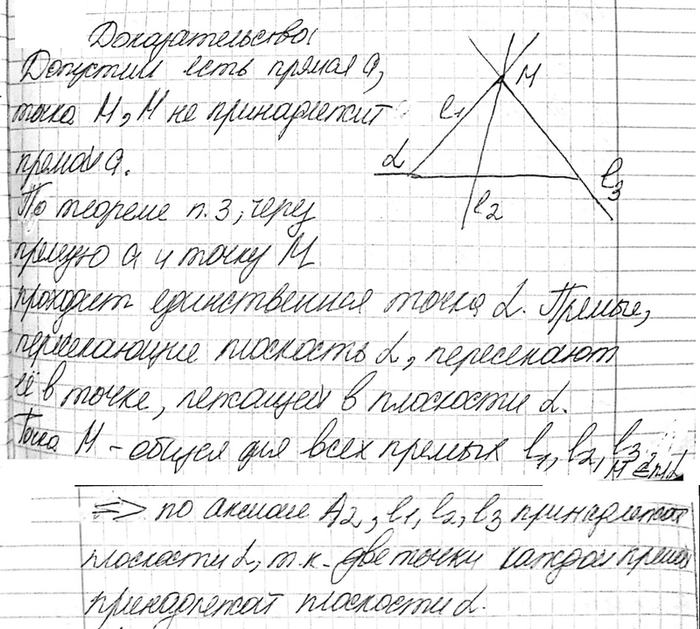 Доказательство:
Допустим есть прямая a,
точка M, M не принадлежит
прямой a.
По теореме п.3, через
прямую a и точку M
проходит единственная точка α. Прямые,
пересекающие плоскость α, пересекают
её в точке, лежащей в плоскости α.
Точка M - общая для всех прямых l1, l2, l3, M ∈ пл.α
=> по аксиоме A2, l1, l2, l3 принадлежат
плоскости α, т.к. две точки каждой прямой
принадлежат плоскости α.
M
l1
α
l2
l3